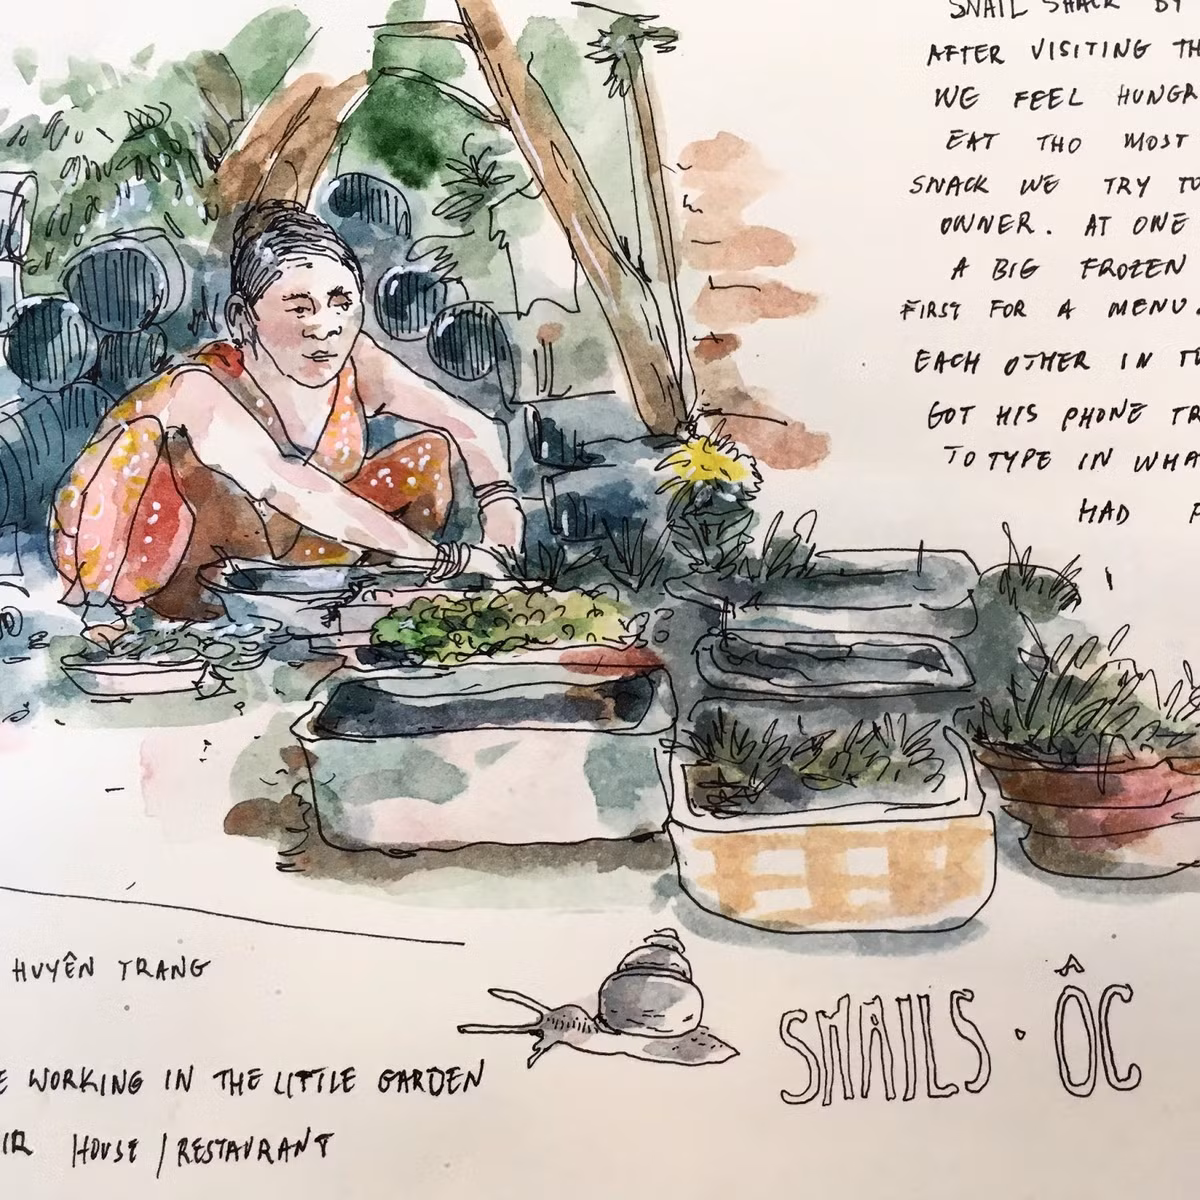 SNAIL SHACK BY
AFTER VISITING TH
WE FEEL HUNGR
EAT THO MOST
SNACK WE TRY TO
OWNER. AT ONE
A BIG FROZEN
FIRST FOR A MENU.
EACH OTHER IN T
GOT HIS PHONE TR
TO TYPE IN WHA
HAD F
HUYÊN TRANG
E WORKING IN THE LITTLE GARDEN
IR HOUSE/RESTAURANT
SNAILS · ÔC